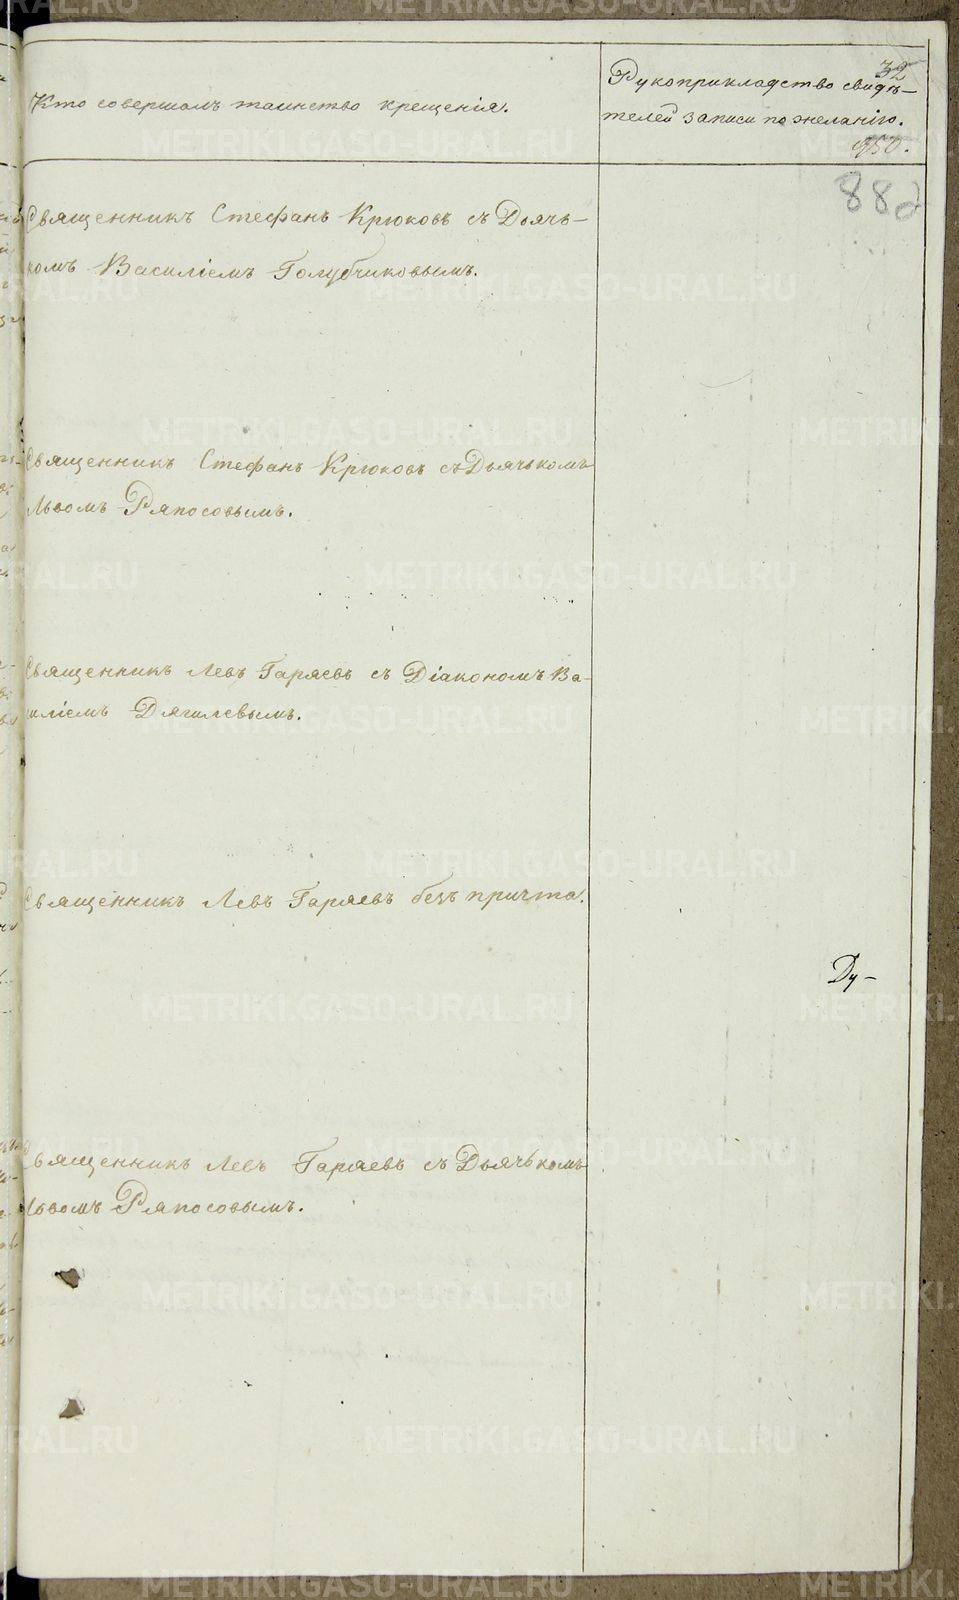 32
Кто совершалъ таинство крещенія.
Рукоприкладство свидѣ-
телей записи по желанію.
950.
882
Священникъ Стефанъ Крюковъ съ Дьячь-
комъ Василіемъ Голубчиковымъ.
Священникъ Стефанъ Крюковъ съ Дьячькомъ
Львомъ Ряпосовымъ.
Священникъ Левъ Гаряевъ съ Діакономъ Ва-
силіемъ Дягилевымъ.
Священникъ Левъ Гаряевъ безъ причта.
Ду-
Священникъ Левъ Гаряевъ съ Дьячькомъ
Львомъ Ряпосовымъ.
METRIKI.GASO-URAL.RU